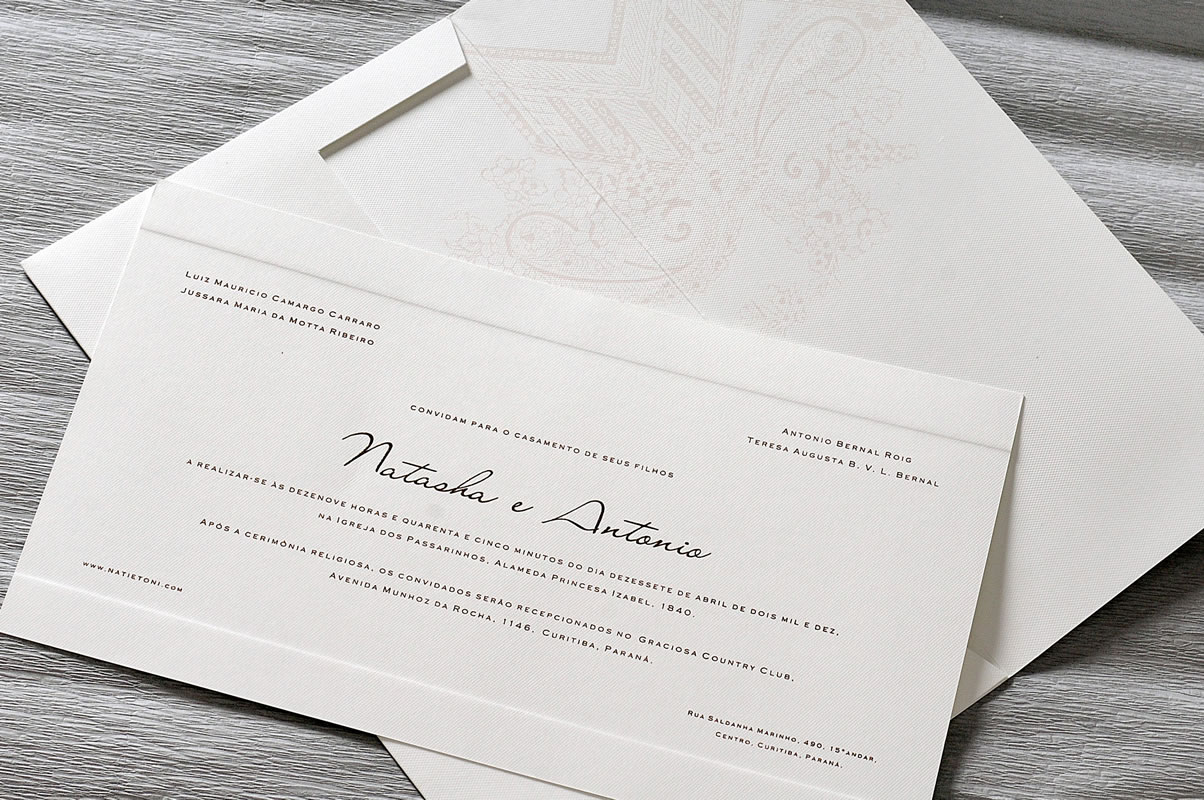 Luiz Mauricio Camargo Carraro
Jussara Maria da Motta Ribeiro
Antonio Bernal Roig
Teresa Augusta B. V. L. Bernal
convidam para o casamento de seus filhos
Natasha e Antonio
a realizar-se às dezenove horas e quarenta e cinco minutos do dia dezessete de abril de dois mil e dez,
na Igreja dos Passarinhos, Alameda Princesa Izabel, 1840.
Após a cerimônia religiosa, os convidados serão recepcionados no Graciosa Country Club,
Avenida Munhoz da Rocha, 1146, Curitiba, Paraná.
www.natietoni.com
Rua Saldanha Marinho, 490, 15°andar,
Centro, Curitiba, Paraná.